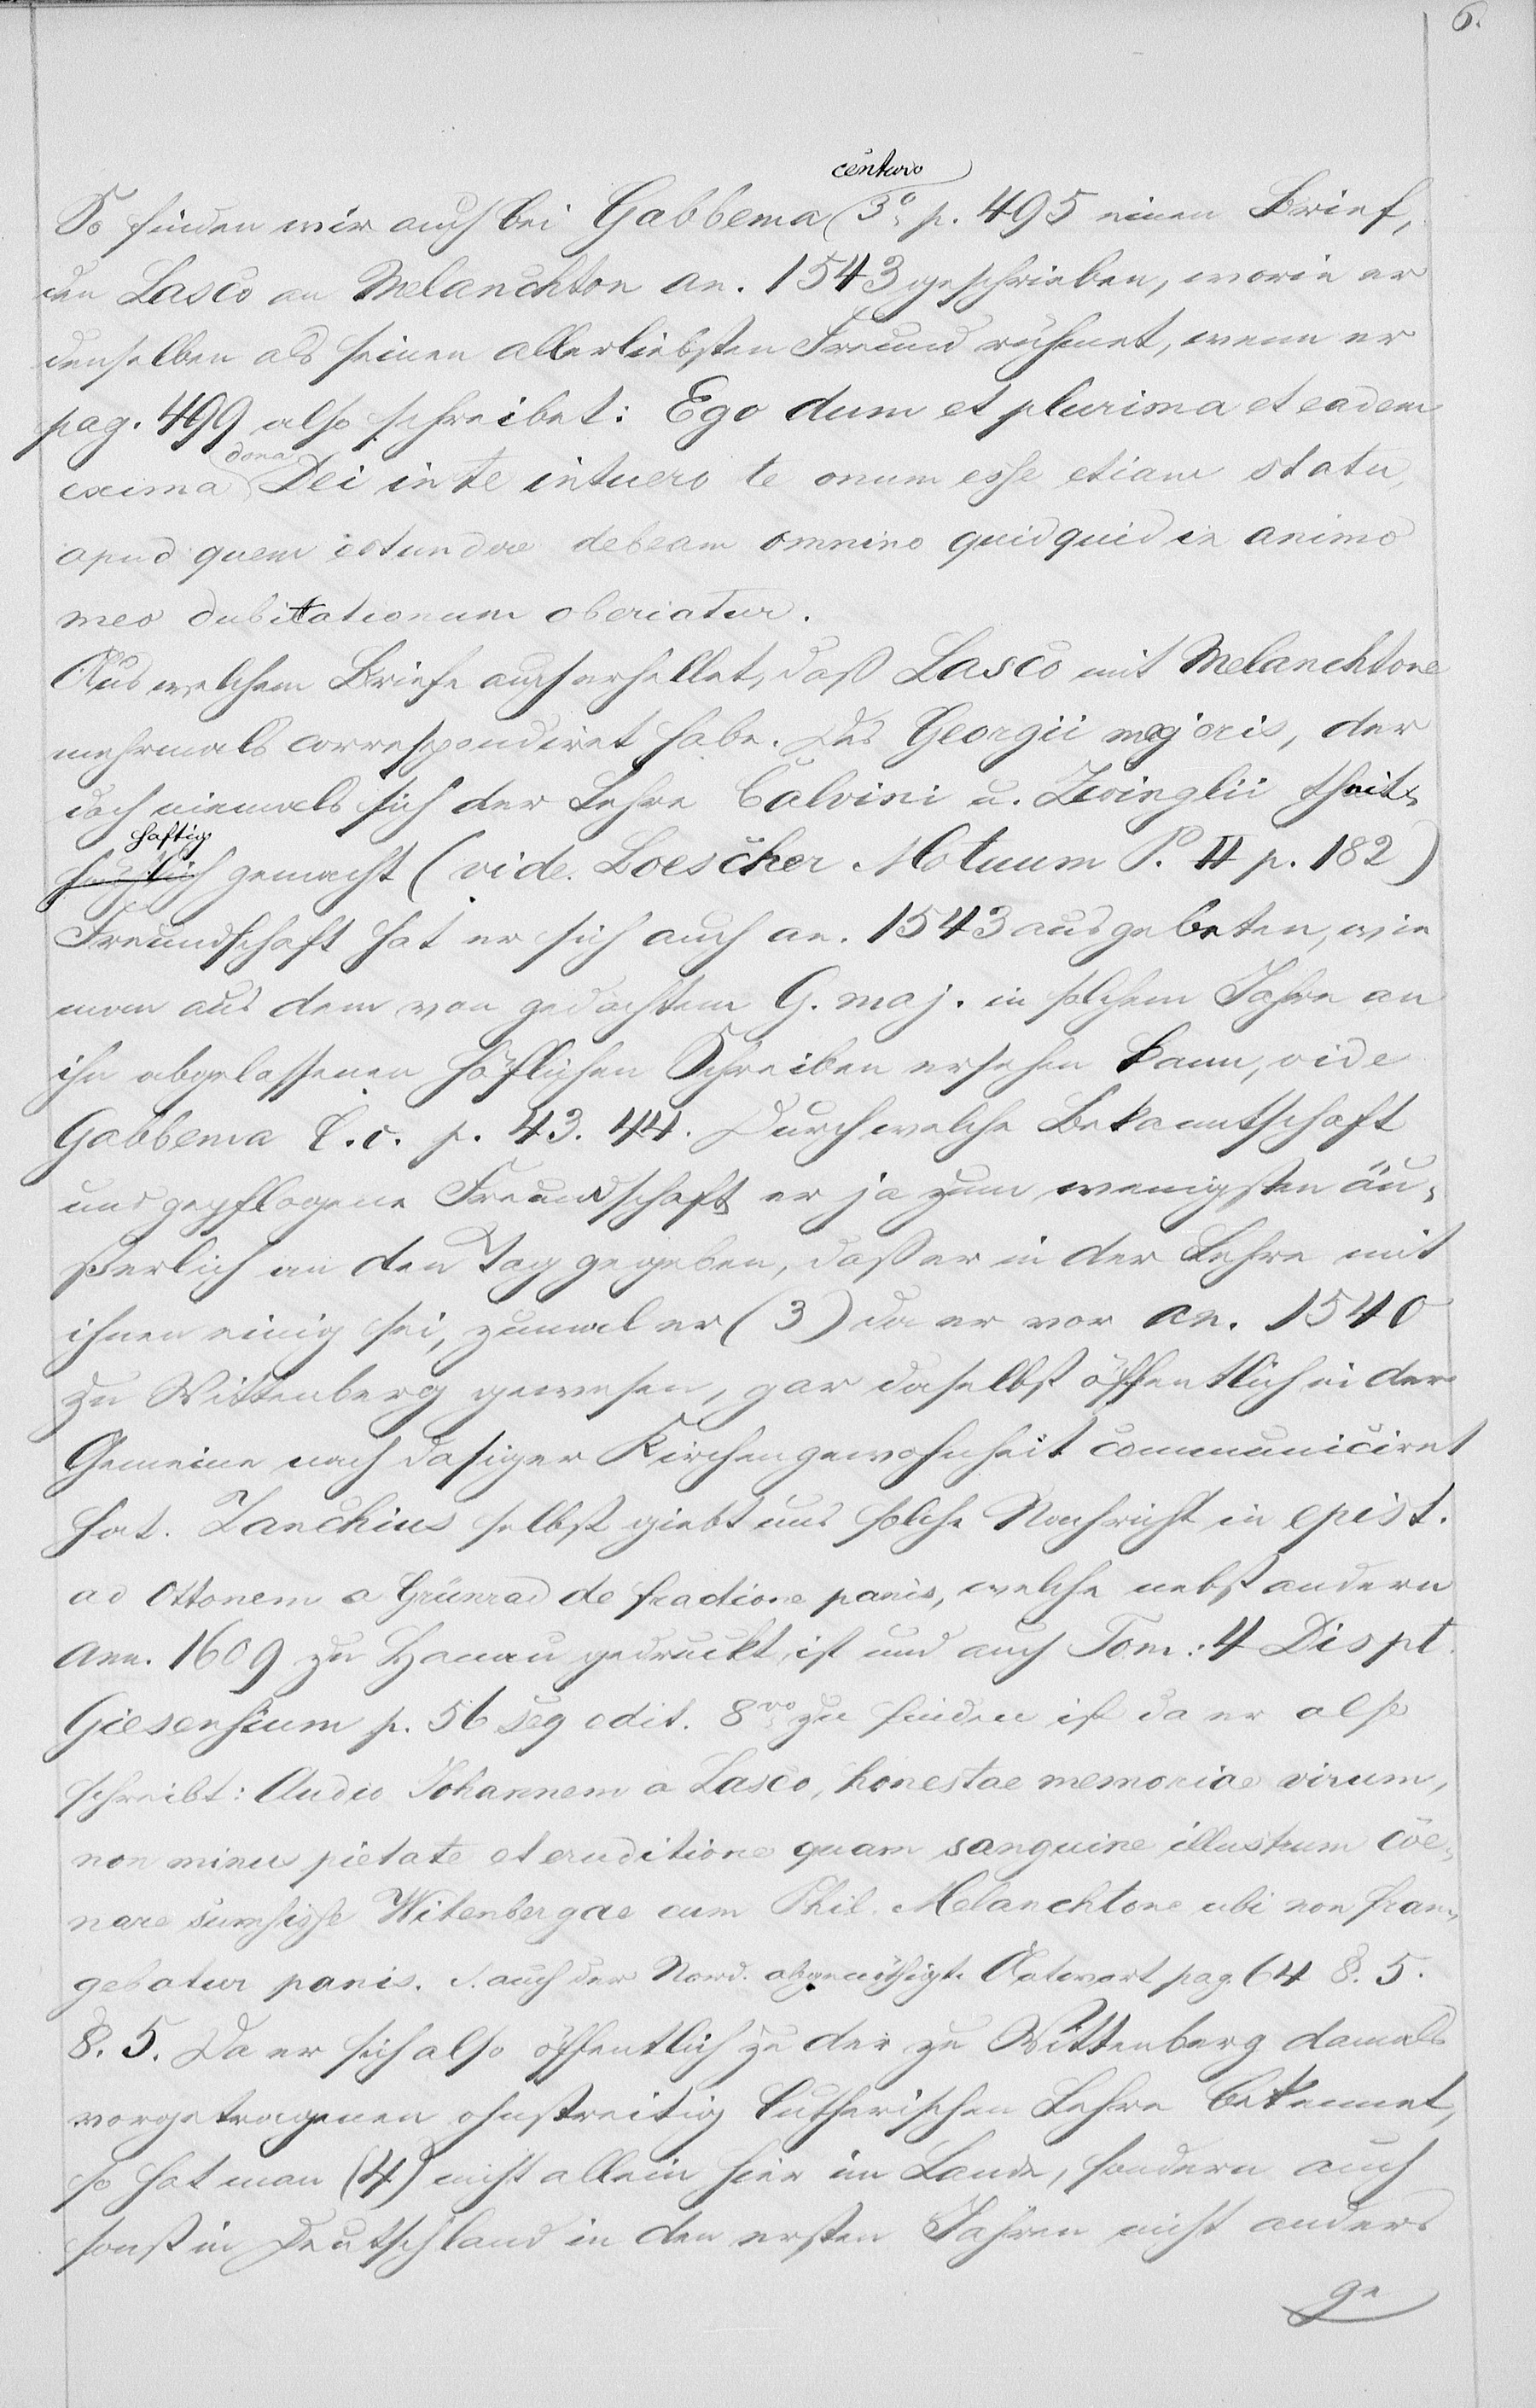 6.
centuro
So finden wir auch bei Gabbema (3o p. 495 einen Brief,
den Lasco an Melanchton an. 1543 geschrieben, worin er
denselben als seinen allerliebsten Freund rühmet, wenn er
pag. 499 also schreibet: Ego dum et plurima et eadem
dona
exima Dei in te intuero te onum esse etiam statu,
apud quem debeam omnino quidquid in animo
meo dubitationum oberiatur.
Aus welchem Briefe auch erhellet, daß Lasco mit Melanchtone
mehrmals correspondiret habe. Des Georgii majoris, der
doch niemals sich der Lehre Calvini u. Zwinglii theil-
haftig
gemacht (vide. Loescher Motuum P. II p. 182)
Freundschaft hat er sich auch an. 1543 ausgebeten, wie
man aus dem von gedachtem G. maj. in solchem Jahre an
ihn abgelassenen höflichen Schreiben ersehen kann, vide
Gabbema l. c. p. 43. 44. Durch welche Bekanntschaft
und gepflogene Freundschaft er ja zum wenigsten äu-
ßerlich an den Tag gegeben, daß er in der Lehre mit
ihnen einig sei, zumal er (3) da er vor an. 1540
zu Wittenberg gewesen, gar daselbst öffentlich in der
Gemeine nach dasiger Kirchengewohnheit communiciret
hat. Zanchius selbst giebt uns solche Nachricht in epist.
ad Ottonem a Grünrad de fractione panis, welche nebst andern
ann. 1609 zu Hanau gedruckt ist und auch Tom: 4 Dispt.
Giesensium p. 56 seq edit. 8vo zu finden ist da er also
schreibt: Audio Johannem à Lasco, honestae memoriae virum,
non minus pietate et eruditione quam sanguine illustrum coe-
nare sumsisse Witenbergae cum Phil. Melanchtone ubi non fran-
gebatur panis. S. auch der Nord. abgenöthigte Antwort pag. 64 8. 5.
8. 5. Da er sich also öffentlich zu der zu Wittenberg damals
vorgetragenen ohnstreitig lutherischen Lehre bekennet,
so hat man (4) nicht allein hier im Lande, sondern auch
sonst in Deutschland in den ersten Jahren nicht anders
ge